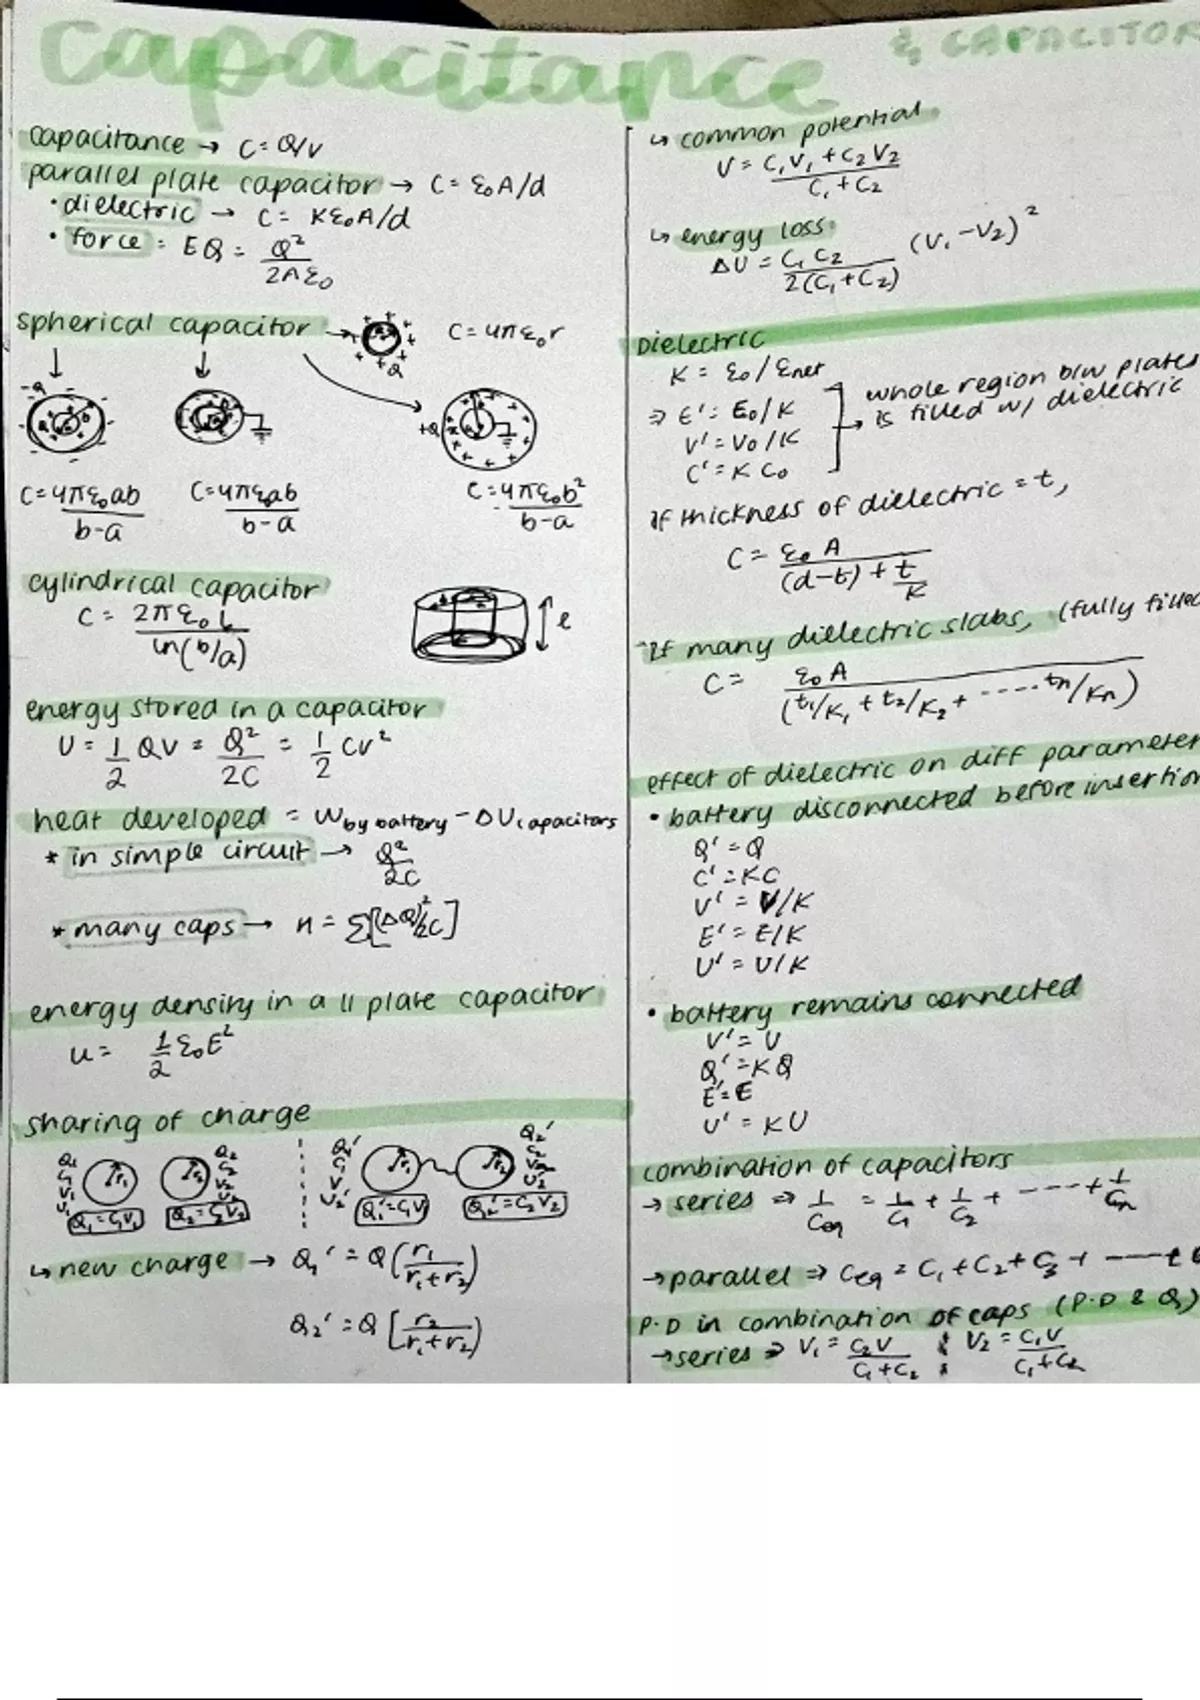 capacitance
& CAPACITOR
capacitance → C = Q/V
parallel plate capacitor → C = ε₀A/d
• dielectric → C = Kε₀A/d
• force = EQ = Q²/2Aε₀
spherical capacitor → C = 4πε₀r
C = 4πε₀ab/b-a
C = 4πε₀ab/b-a
C = 4πε₀b²/b-a
cylindrical capacitor
C = 2πε₀L/ln(b/a)
l
energy stored in a capacitor
U = 1/2 QV = Q²/2C = 1/2 CV²
heat developed = W by battery - ΔU capacitors
* in simple circuit → Q²/2C
* many caps → H = Σ[(ΔQ)²/2C]
energy density in a || plate capacitor
u = 1/2 ε₀E²
sharing of charge
Q₁ C₁ V₁ U₁ r₁ Q₂ C₂ V₂ U₂
Q₁ = C₁V₁ Q₂ = C₂V₂ Q₁' = C₁V Q₂' = C₂V₂
↳ new charge → Q₁' = Q(r₁/r₁+r₂)
Q₂' = Q[r₂/r₁+r₂)
↳ common potential
V = C₁V₁ + C₂V₂/C₁ + C₂
↳ energy loss
ΔU = C₁C₂/2(C₁+C₂) (V₁-V₂)²
Dielectric
K = ε₀/εnet
⇒ E' = E₀/K
V' = V₀/K
C' = K C₀
→ whole region b/w plates
is filled w/ dielectric
If thickness of dielectric = t,
C = ε₀A/(d-t) + t/K
If many dielectric slabs, (fully filled
C = ε₀A/(t₁/K₁ + t₂/K₂ + ----- tn/Kn)
effect of dielectric on diff parameter
• battery disconnected before insertion
Q' = Q
C' = KC
V' = V/K
E' = E/K
U' = U/K
• battery remains connected
V' = V
Q' = KQ
E' = E
U' = KU
combination of capacitors
→ series ⇒ 1/Ceq = 1/C₁ + 1/C₂ + ---- + 1/Cn
→ parallel ⇒ Ceq = C₁ + C₂ + C₃ + ---- +
P.D in combination of caps (P.D & Q)
→ series ⇒ V₁ = C₂V/C₁+C₂ & V₂ = C₁V/C₁+C₂